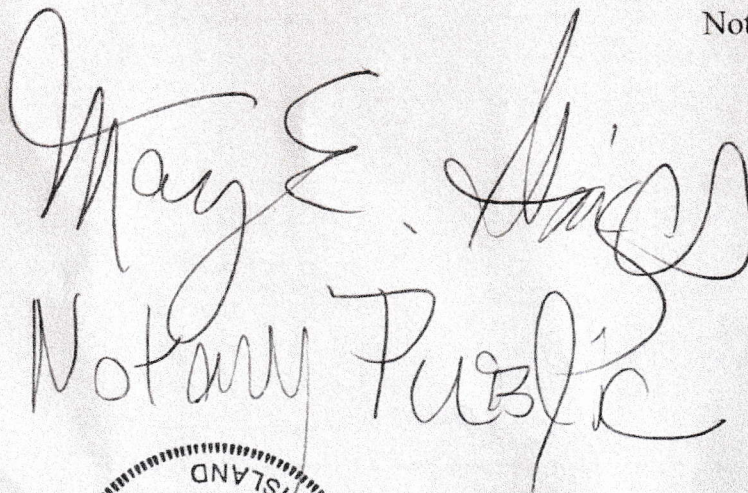 Not
Mary E.
Notary Public
ISLAND